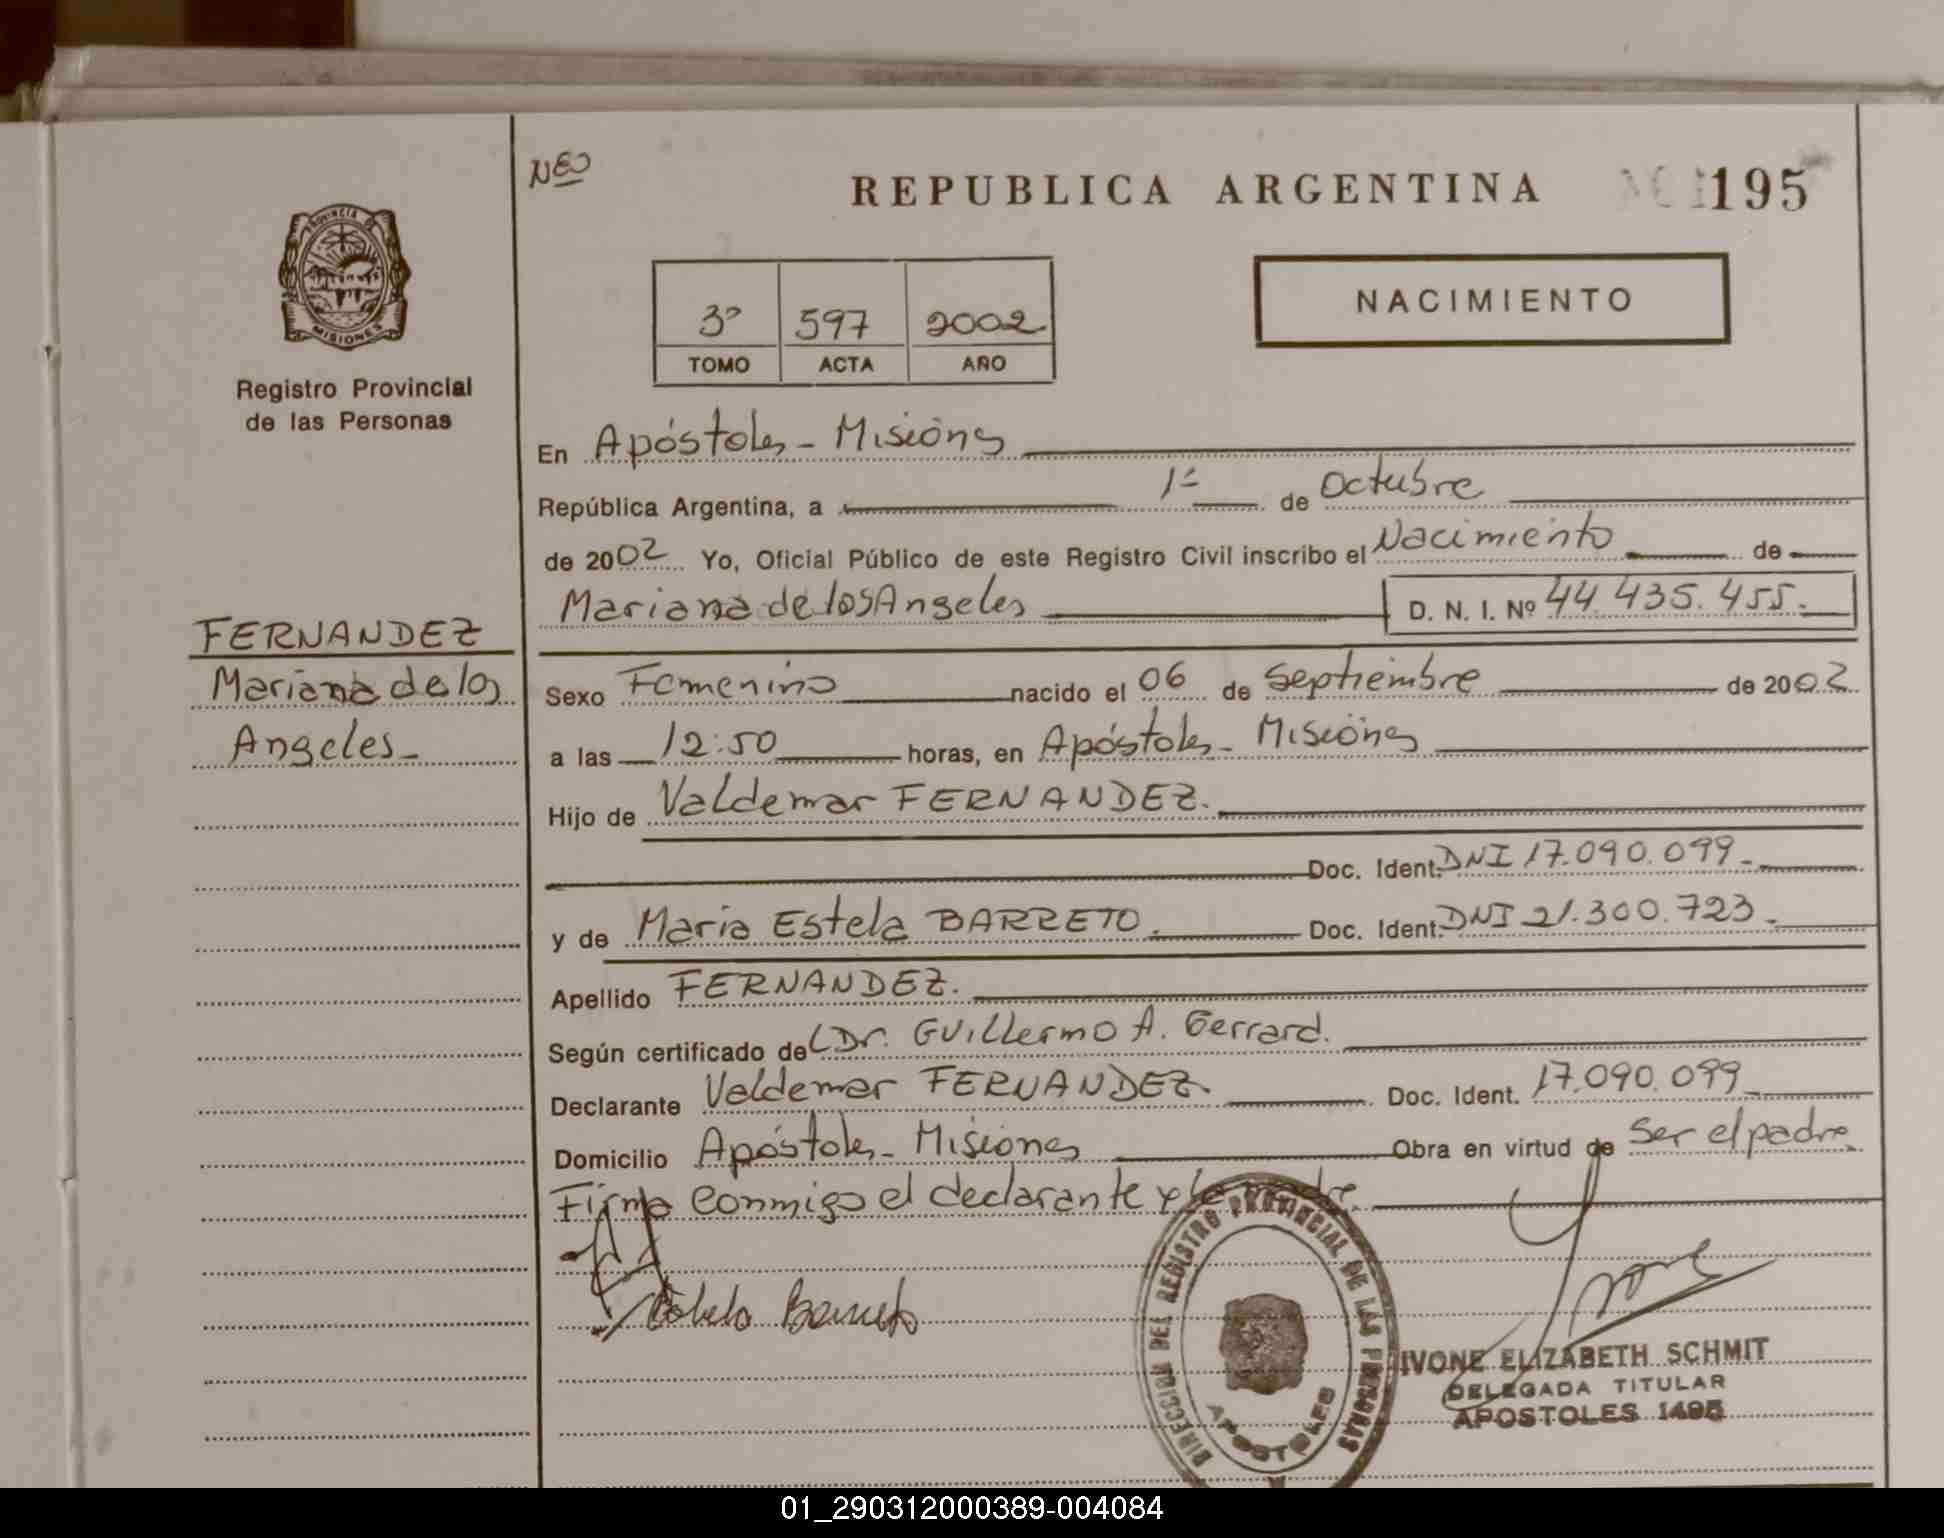 NEO
REPUBLICA ARGENTINA 195
PROVINCIA DE MISIONES
3º 597 2002
TOMO ACTA AÑO
NACIMIENTO
Registro Provincial
de las Personas
En Apóstoles - Misiones
República Argentina, a 1º de Octubre
de 2002 Yo, Oficial Público de este Registro Civil inscribo el Nacimiento de
Mariana de los Angeles D. N. I. Nº 44.435.455.
FERNANDEZ
Mariana de los
Angeles -
Sexo Femenino nacido el 06 de Septiembre de 2002
a las 12:50 horas, en Apóstoles - Misiones
Hijo de Valdemar FERNANDEZ.
Doc. Ident. DNI 17.090.099 -
y de Maria Estela BARRETO. Doc. Ident. DNI 21.300.723 -
Apellido FERNANDEZ.
Según certificado del Dr. Guillermo A. Gerrard.
Declarante Valdemar FERNANDEZ. Doc. Ident. 17.090.099
Domicilio Apóstoles - Misiones Obra en virtud de ser el padre
Firma conmigo el declarante y la madre.
Barreto
DIRECCION DEL REGISTRO PROVINCIAL DE LAS PERSONAS
APOSTOLES
IVONE ELIZABETH SCHMIT
DELEGADA TITULAR
APOSTOLES 1495
01_290312000389-004084